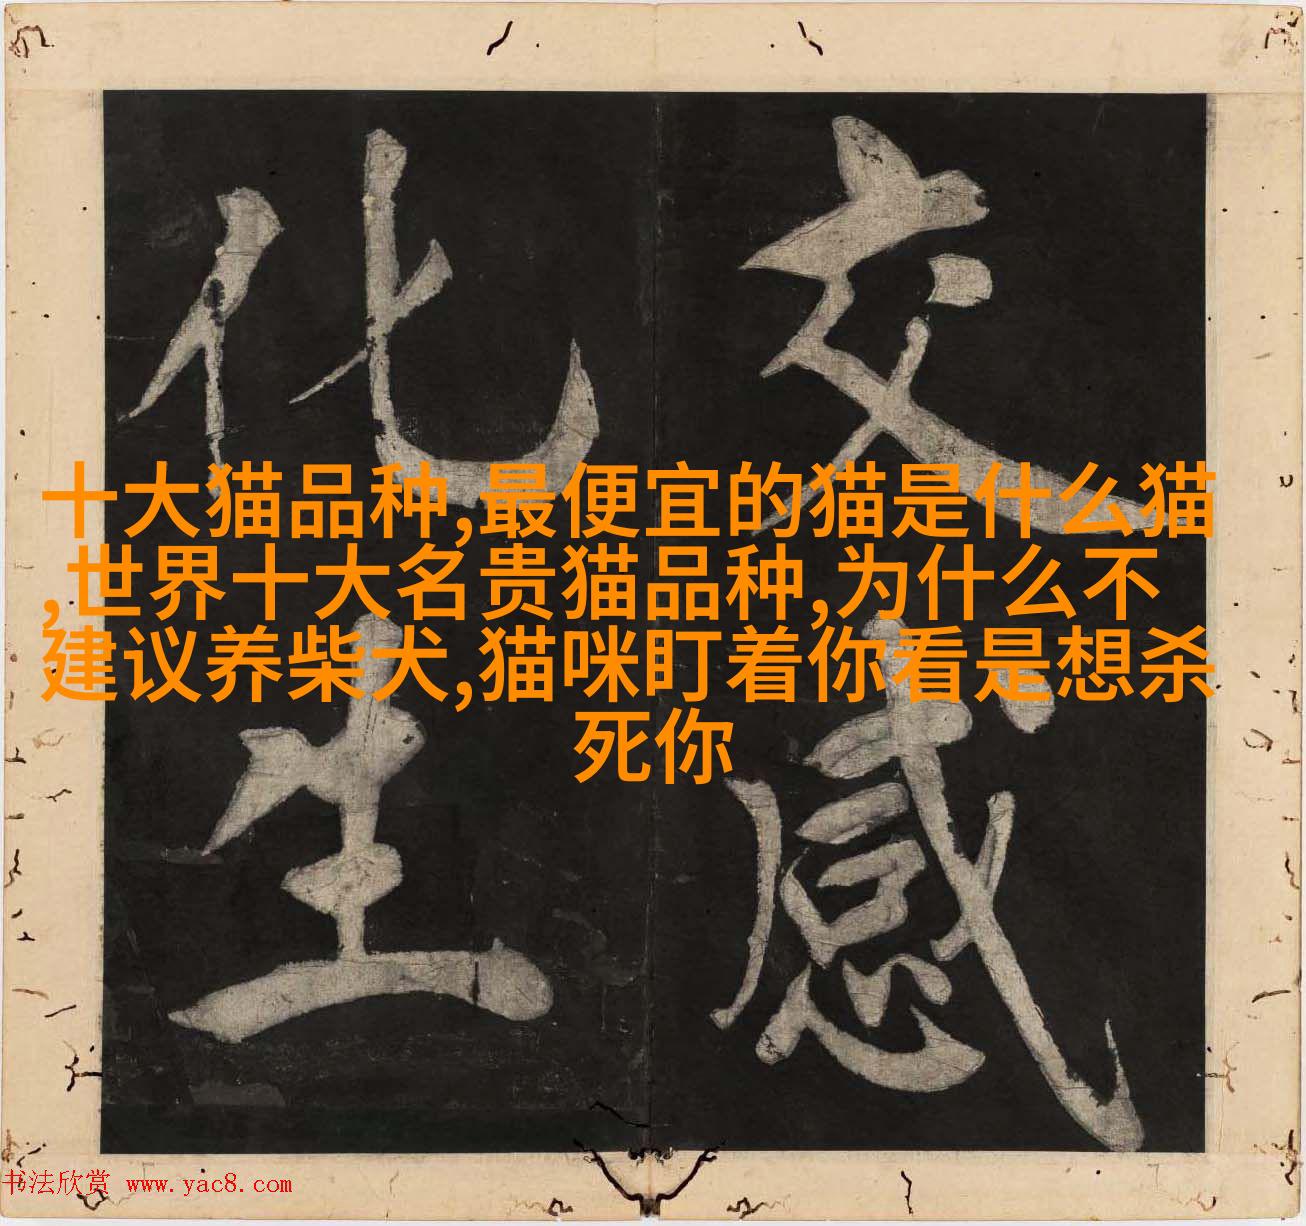 交感
化生
十大猫品种,最便宜的猫是什么猫
,世界十大名贵猫品种,为什么不
建议养柴犬,猫咪盯着你看是想杀
死你
书法欣赏 www.yac8.com